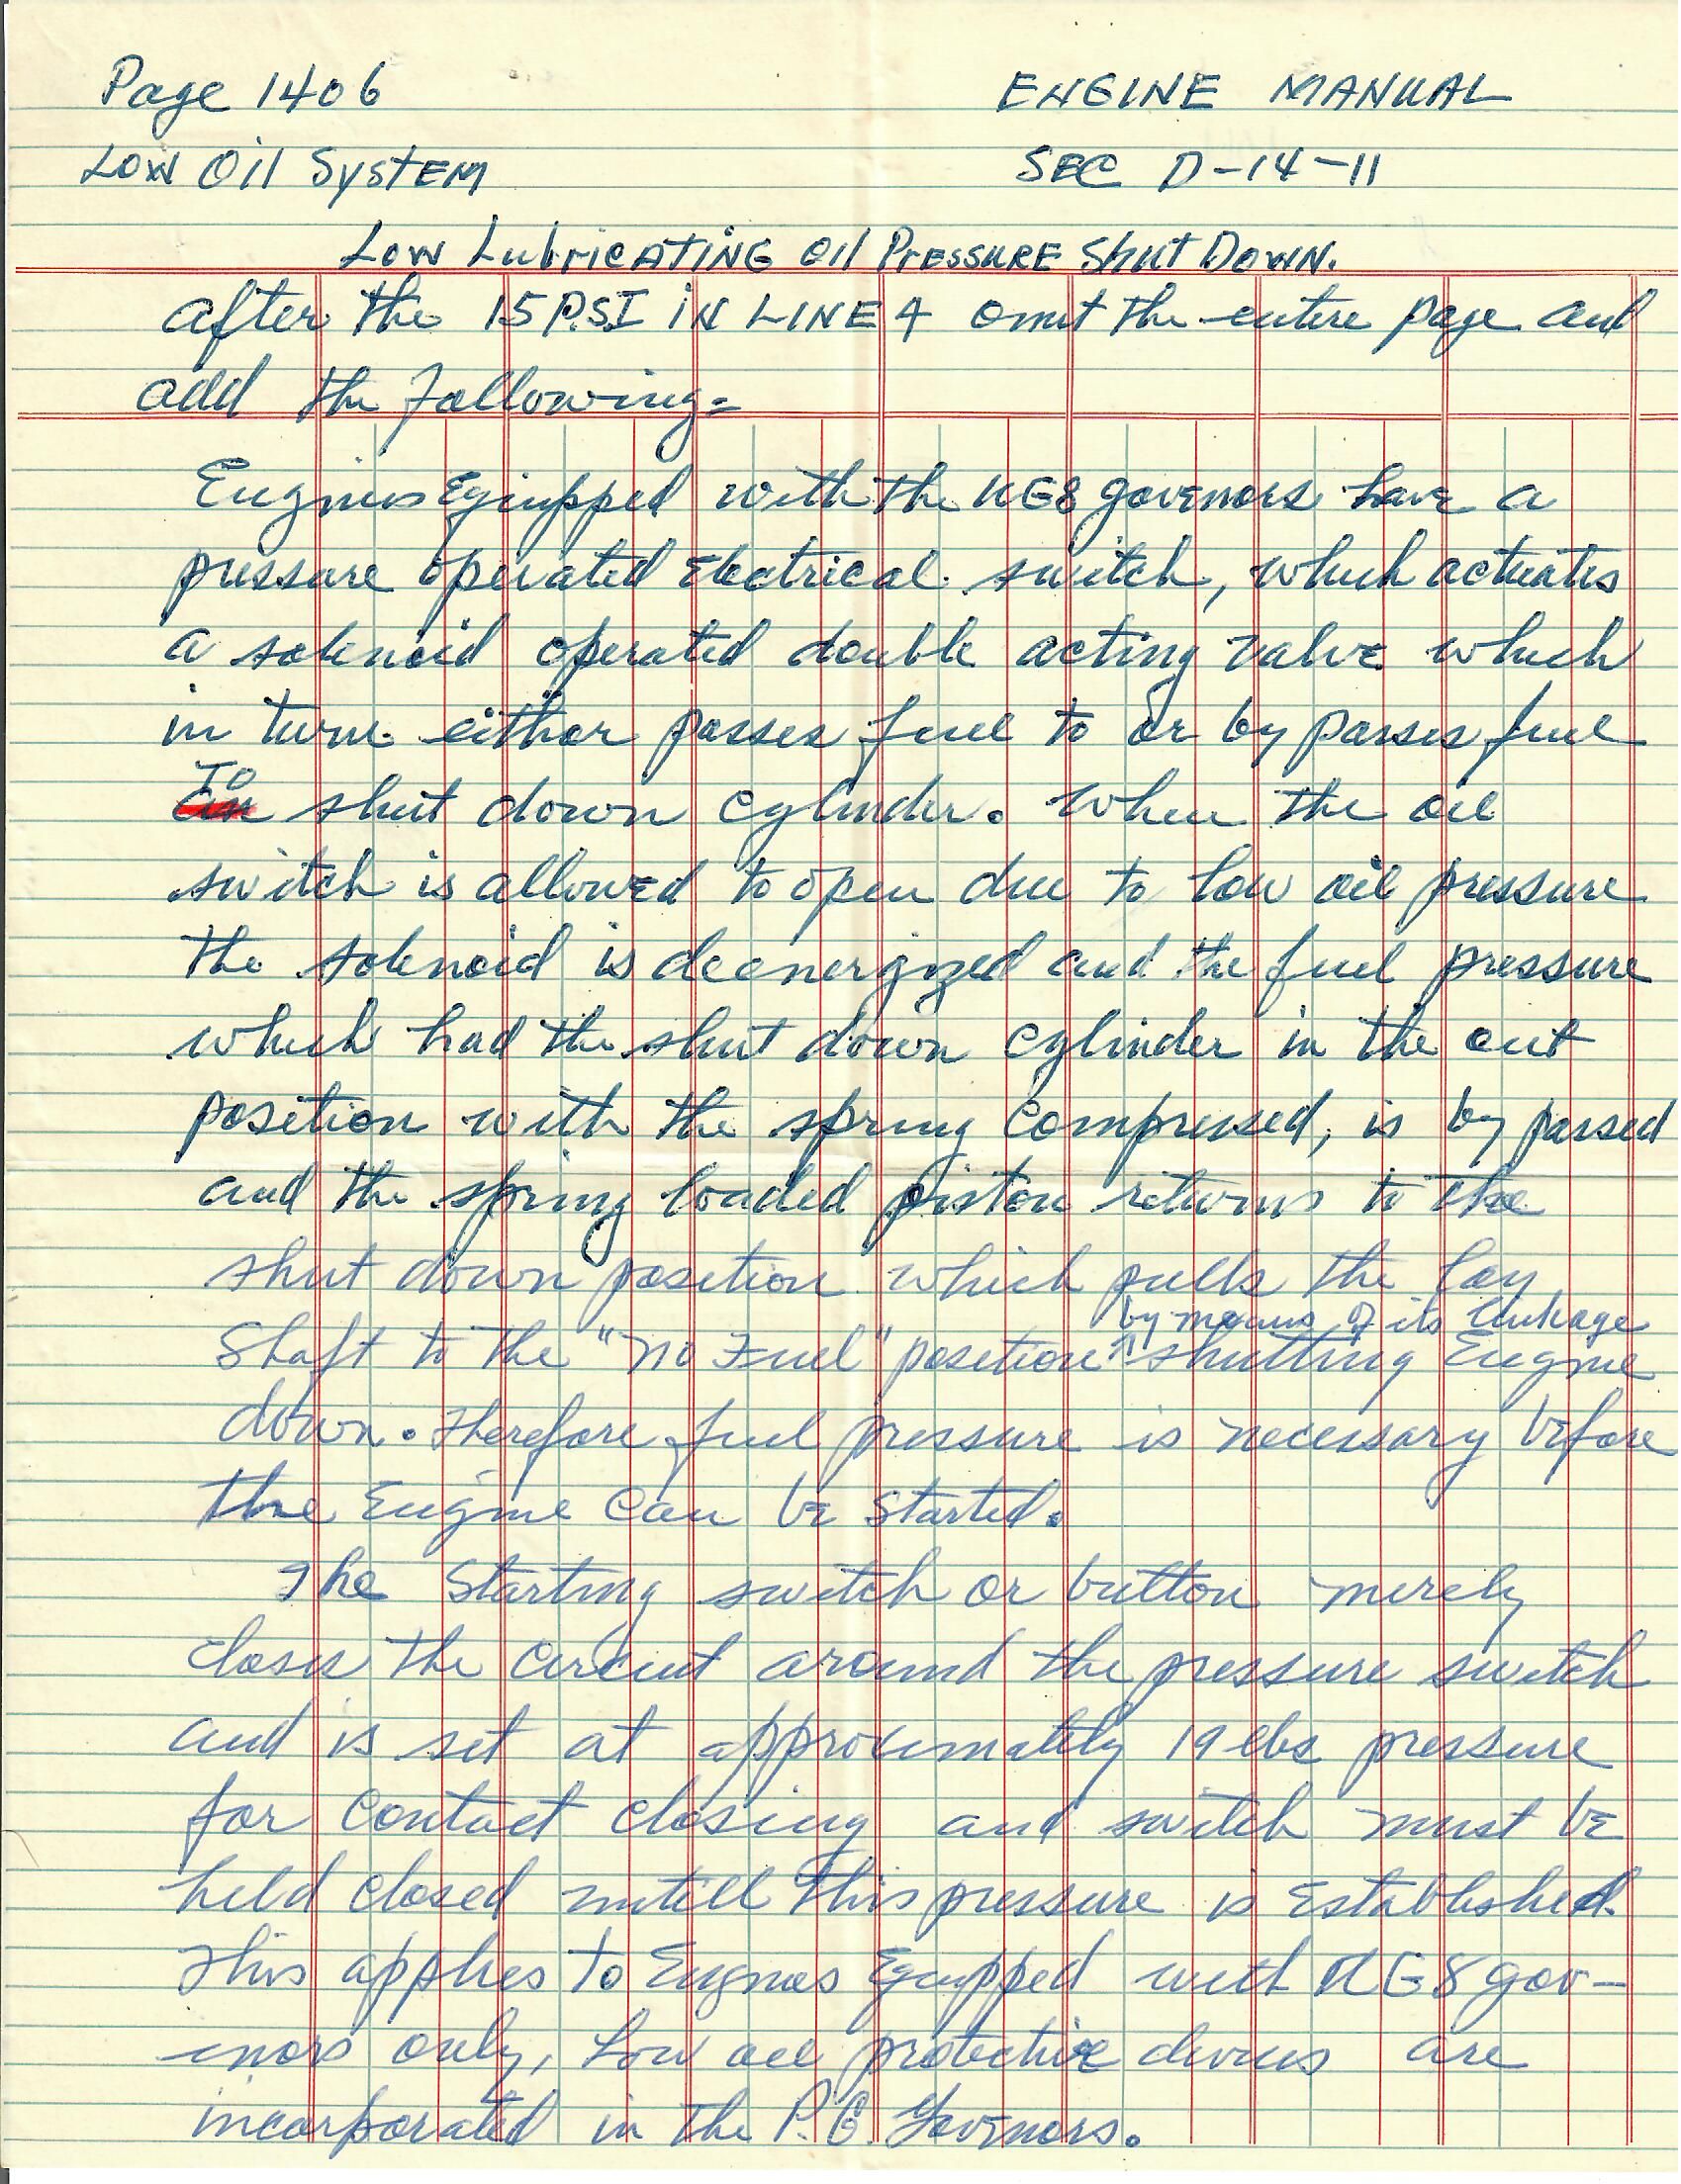 Page 1406
ENGINE MANUAL
Low Oil System
SEC D-14-11
Low Lubricating Oil Pressure Shut Down.
after the 15 P.S.I in LINE 4 omit the entire page and
add the following=
Engines Equipped with the UG8 govenors have a
pressure operated Electrical switch, which actuates
a solenoid operated double acting valve which
in turn either passes fuel to or by passes fuel
TO
shut down cylinder. When the oil
switch is allowed to open due to low oil pressure
the solenoid is deenergized and the fuel pressure
which had the shut down cylinder in the out
position with the spring compressed, is by passed
and the spring loaded piston returns to the
shut down position which pulls the lay
by means of its linkage
Shaft to the "no Fuel" position ^ shutting Engine
down. Therefore fuel pressure is necessary before
the Engine can be started.
The Starting switch or button merely
closes the circuit around the pressure switch
and is set at approximately 19 lbs pressure
for contact closing and switch must be
held closed untill this pressure is established.
This applies to Engines Equipped with UG8 gov-
enors only, Low oil protective devices are
incorporated in the P.G. Govenors.